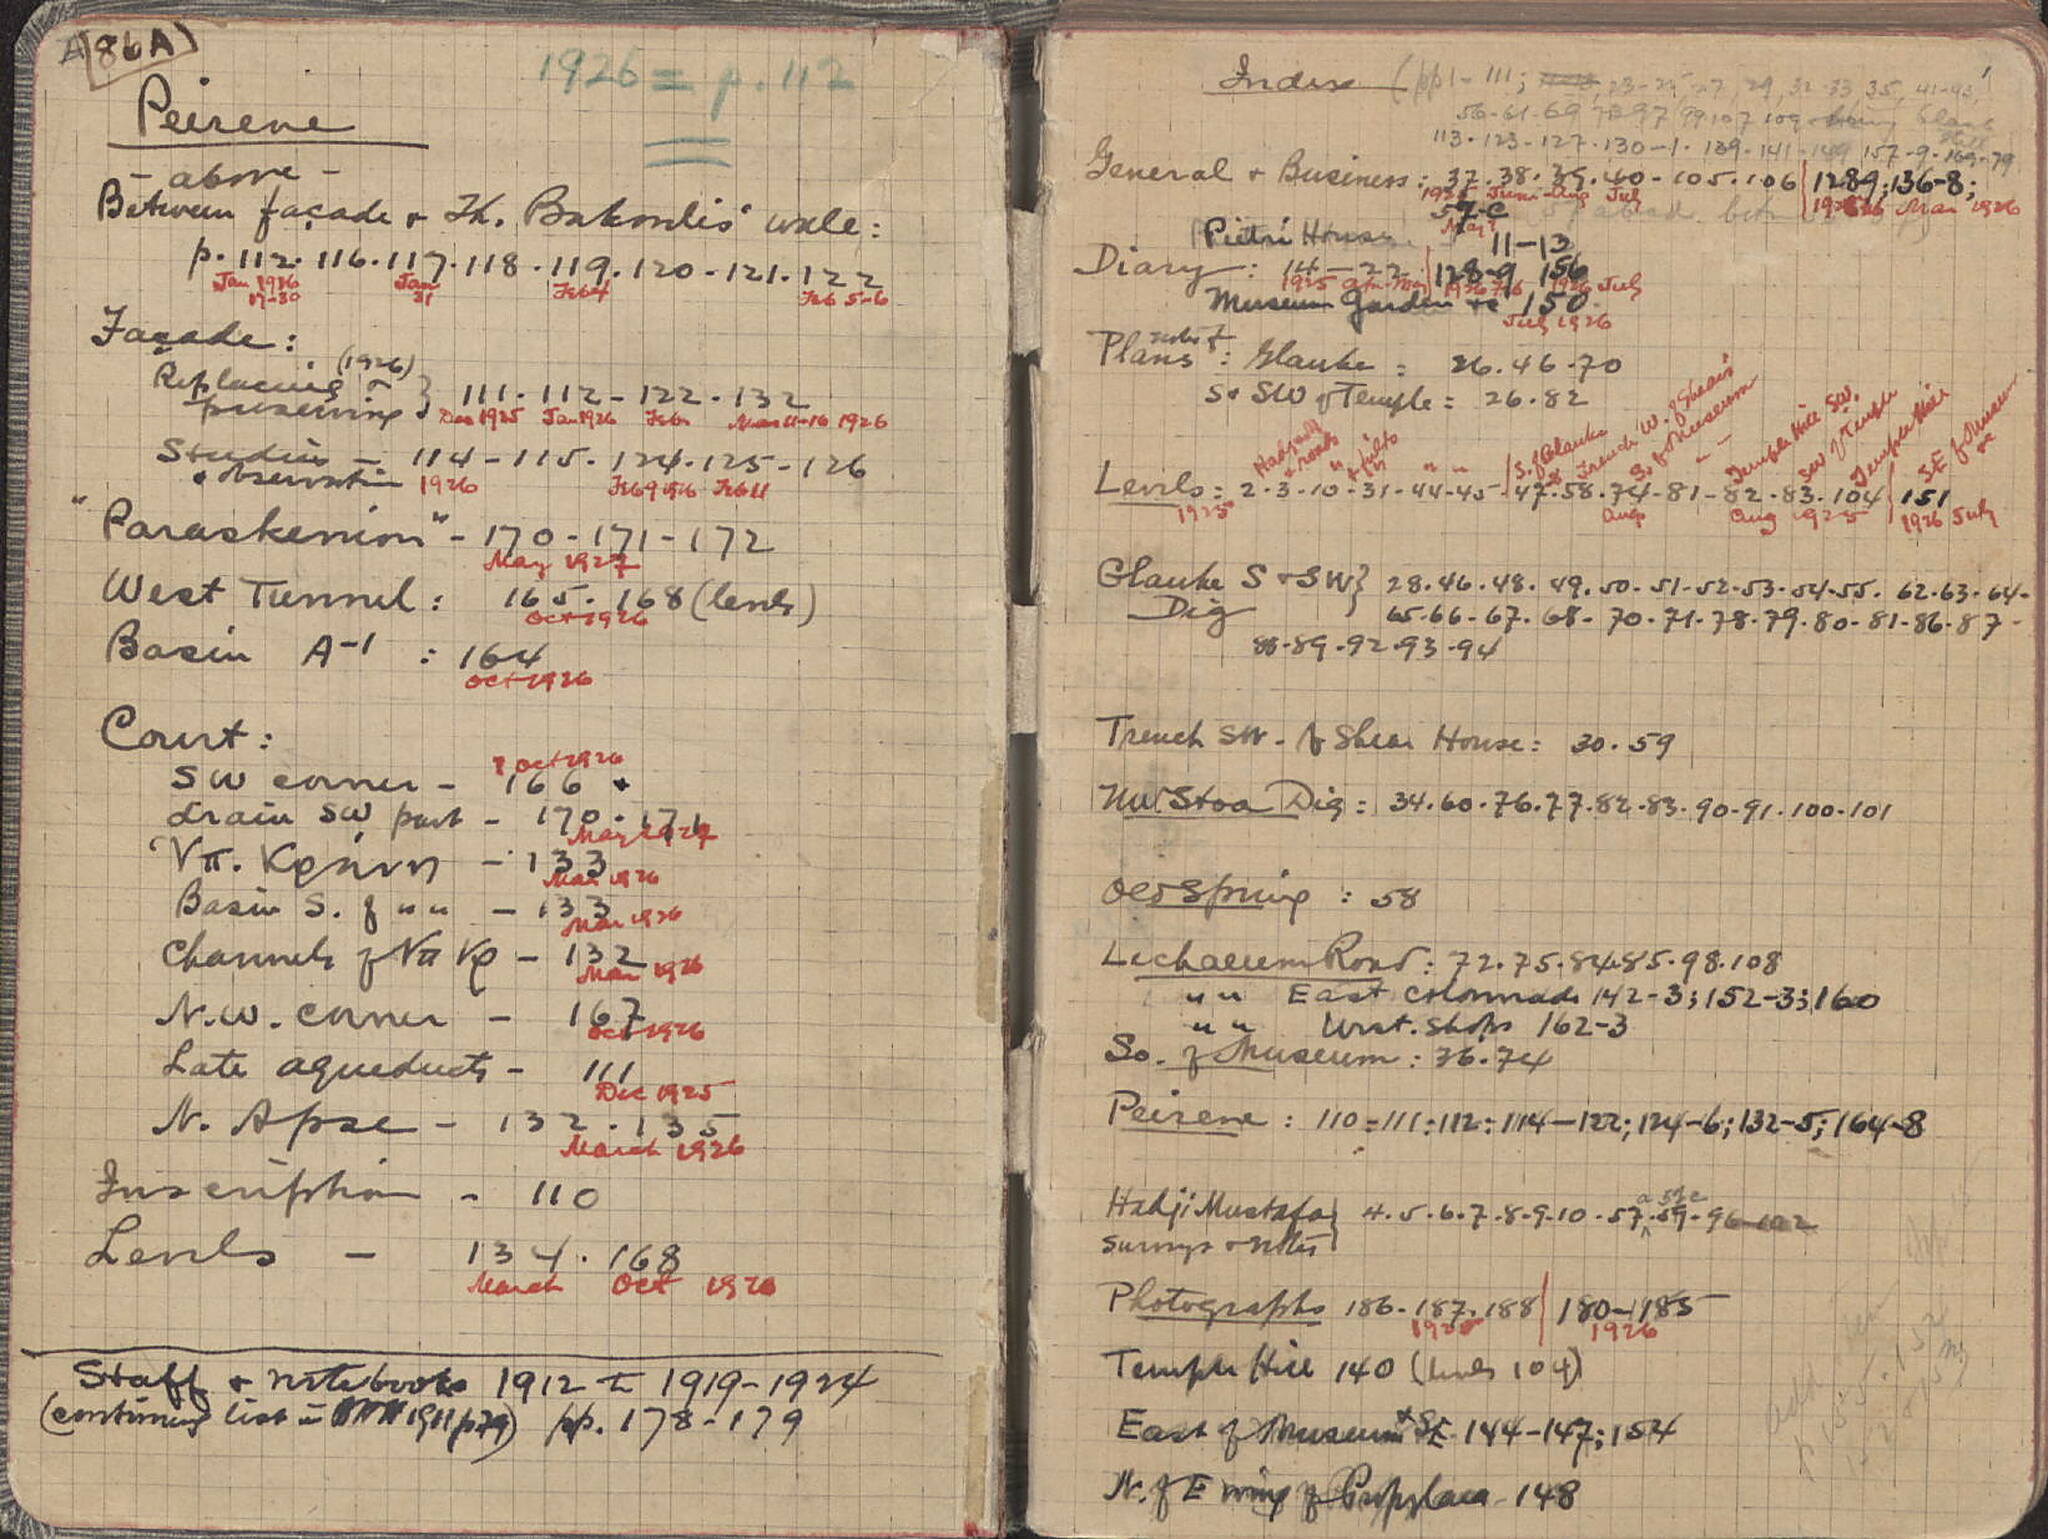 86A
1926 = p. 112
Peirene
- above -
Between façade & Th. Bakoulis' wall:
p. 112. 116. 117. 118. 119. 120 - 121. 122
Jan 1926 Jan Feb 4 Feb 5-6
17-30 31
Façade:
(1926)
Replacing &
preserving } 111. 112 - 122. 132
Dec 1925 Jan 1926 Feb Mar 11-16 1926
Studies - 114 - 115. 124. 125 - 126
& observation 1926 Feb 9 1926 Feb 11
"Paraskenion" - 170 - 171 - 172
May 1927
West Tunnel: 165. 168 (levels)
Oct 1926
Basin A-1 : 164
Oct 1926
Court:
Oct 1926
SW corner - 166
drain SW part - 170. 171
May 1927
Ὑπ. Κρήνη - 133
Mar 1926
Basin S. of " " - 133
Mar 1926
Channels of Υπ Κρ - 132
Mar 1926
N.W. corner - 167
Oct 1926
Late aqueducts - 111
Dec 1925
N. Apse - 132. 135
March 1926
Inscription - 110
Levels - 134. 168
March Oct 1926
Staff & notebooks 1912 to 1919-1924
(continues list in 1911 p79) pp. 178-179
Index (pp 1-111; 23-25 27, 29, 32-33 35, 41-43,
56-61-69 97 99 107 109 being blank
113-123-127-130-1. 139-141-149 157-9-169-79
General & Business: 37. 38. 39. 40 - 105. 106 | 128-9; 136-8;
1925 June-Aug July 1926 Mar 1926
57-c
May
Pietri House 11-13
Diary: 14-22 | 128-9 156
1925 Apr-May 1926 Feb 1926 July
Museum Garden 150
July 1926
Plans notes of: Glauke = 26. 46. 70
S & SW of Temple = 26. 82
Hadji & roads " & hill to " " S. of Glauke Trench W. of Shear's So of Museum " - Temple Hill SW. SW of Temple Temple Hill SE of Museum
Levels: 2. 3-10-31-44-45 | 47. 58. 74-81-82. 83. 104 | 151
1925 Aug Aug 1925 1926 July
Glauke S & SW } 28. 46. 48. 49. 50. 51-52-53-54-55. 62-63-64-
Dig 65-66-67. 68-70-71-78-79-80-81-86-87-
88-89-92-93-94
Trench SW. of Shear House: 30. 59
NW Stoa Dig: 34. 60. 76. 77. 82. 83. 90-91. 100-101
Old Spring : 58
Lechaeum Road: 72. 75. 84. 85. 98. 108
" " East Colonnade 142-3; 152-3; 160
" " West. Shops 162-3
So. of Museum: 36. 74
Peirene : 110 = 111: 112: 114-122; 124-6; 132-5; 164-8
a 59c
Hadji Mustafa } 4. 5. 6. 7. 8. 9. 10. 57. 59. 96
surveys & notes
Photographs 186. 187. 188 | 180-185
1925 1926
Temple Hill 140 (levels 104)
East of Museum & SE 144-147; 154
N. of E wing of Propylaea 148